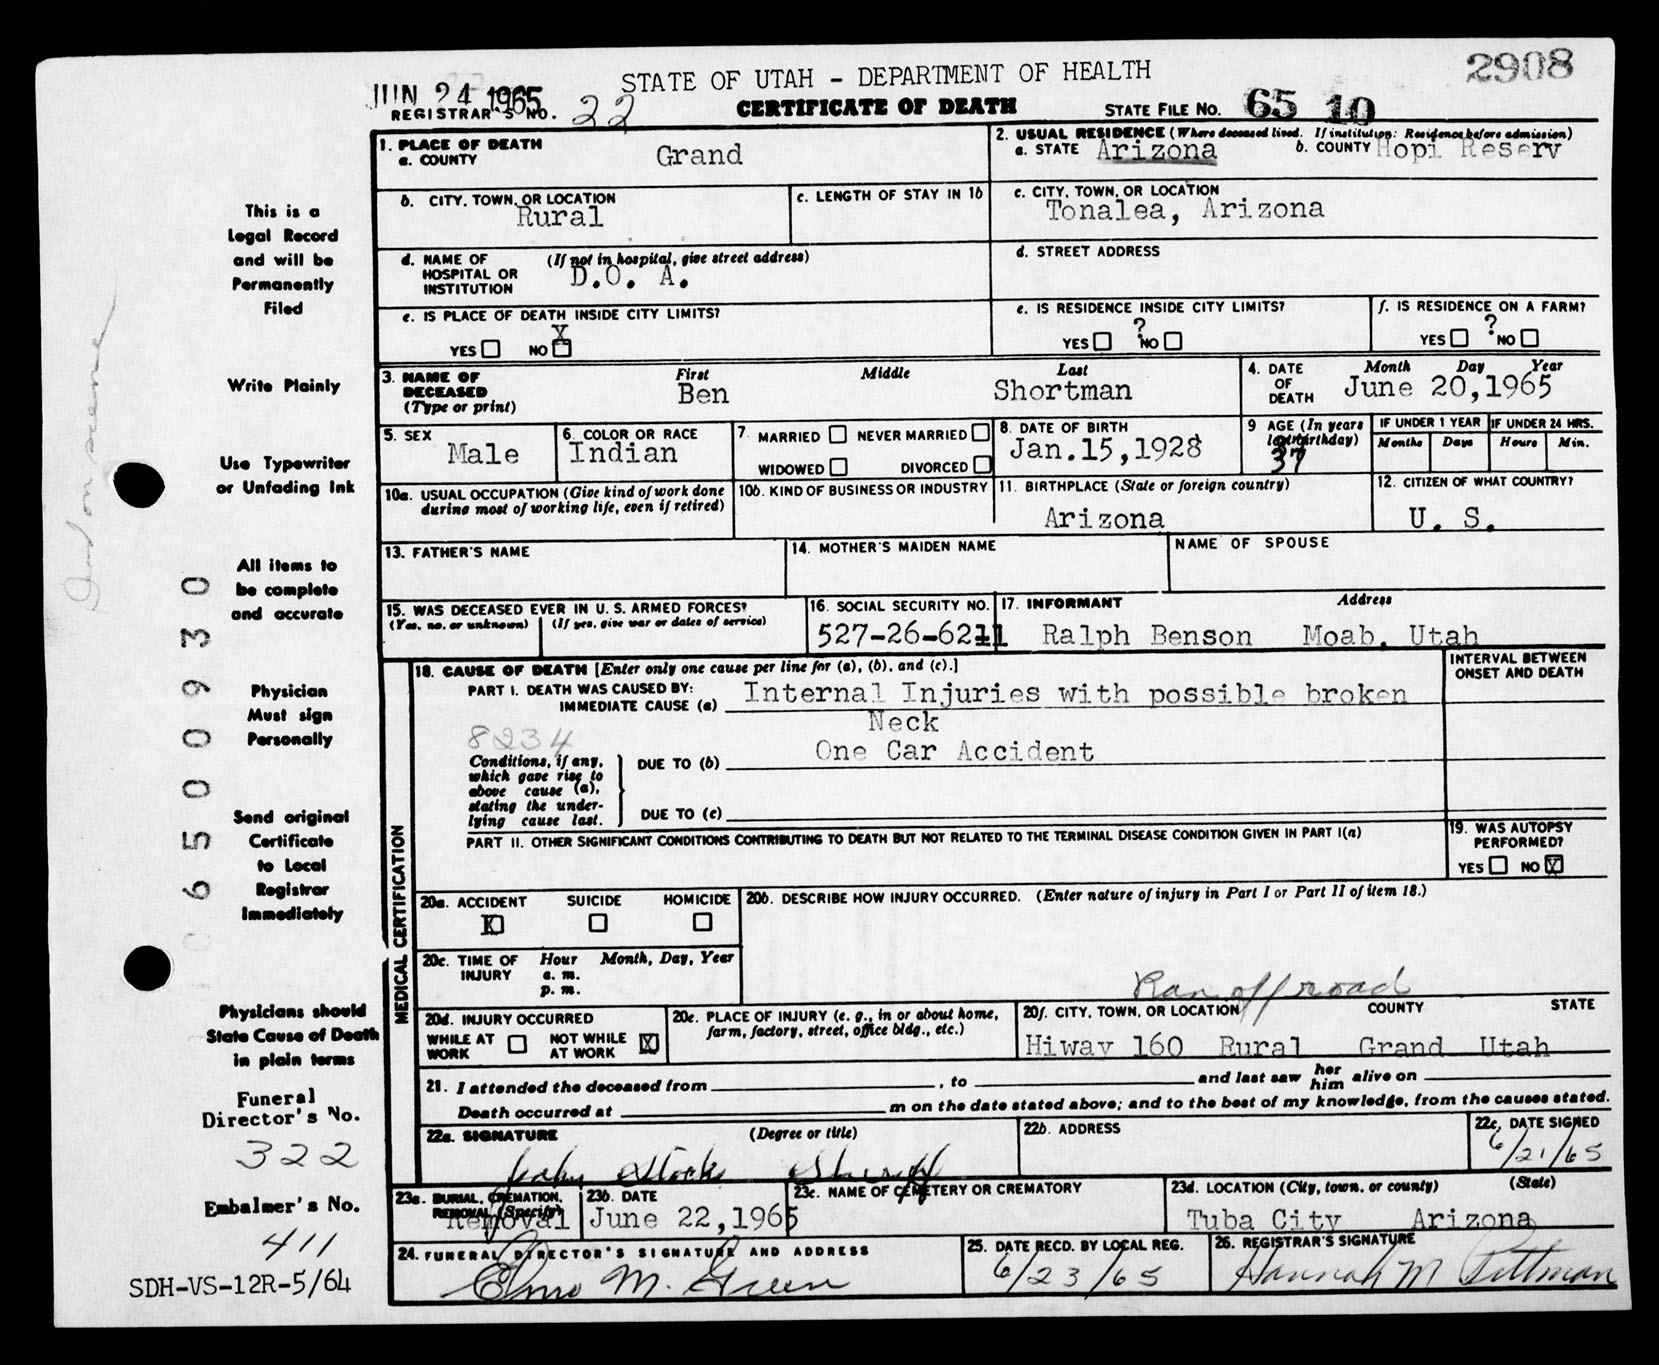 2908
JUN 24 1965
STATE OF UTAH - DEPARTMENT OF HEALTH
REGISTRAR'S NO. 22
CERTIFICATE OF DEATH
STATE FILE NO. 65 10
1. PLACE OF DEATH
a. COUNTY Grand
2. USUAL RESIDENCE (Where deceased lived. If institution: Residence before admission)
a. STATE Arizona b. COUNTY Hopi Reserv
b. CITY, TOWN, OR LOCATION Rural
c. LENGTH OF STAY IN 1b
c. CITY, TOWN, OR LOCATION
Tonalea, Arizona
d. NAME OF HOSPITAL OR INSTITUTION (If not in hospital, give street address)
D.O. A.
d. STREET ADDRESS
e. IS PLACE OF DEATH INSIDE CITY LIMITS?
YES NO X
e. IS RESIDENCE INSIDE CITY LIMITS?
YES ? NO
f. IS RESIDENCE ON A FARM?
YES ? NO
3. NAME OF DECEASED (Type or print)
First Middle Last
Ben Shortman
4. DATE OF DEATH
Month Day Year
June 20,1965
5. SEX
Male
6. COLOR OR RACE
Indian
7. MARRIED NEVER MARRIED
WIDOWED DIVORCED
8. DATE OF BIRTH
Jan.15,1928
9 AGE (In years last birthday)
37
IF UNDER 1 YEAR
Months Days
IF UNDER 24 HRS.
Hours Min.
10a. USUAL OCCUPATION (Give kind of work done during most of working life, even if retired)
10b. KIND OF BUSINESS OR INDUSTRY
11. BIRTHPLACE (State or foreign country)
Arizona
12. CITIZEN OF WHAT COUNTRY?
U. S.
13. FATHER'S NAME
14. MOTHER'S MAIDEN NAME
NAME OF SPOUSE
15. WAS DECEASED EVER IN U. S. ARMED FORCES?
(Yes, no, or unknown) (If yes, give war or dates of service)
16. SOCIAL SECURITY NO.
527-26-6211
17. INFORMANT Address
Ralph Benson Moab, Utah
MEDICAL CERTIFICATION
18. CAUSE OF DEATH [Enter only one cause per line for (a), (b), and (c).]
INTERVAL BETWEEN ONSET AND DEATH
PART I. DEATH WAS CAUSED BY:
IMMEDIATE CAUSE (a) Internal Injuries with possible broken
Neck
8234
Conditions, if any, which gave rise to above cause (a), stating the underlying cause last.
DUE TO (b) One Car Accident
DUE TO (c)
PART II. OTHER SIGNIFICANT CONDITIONS CONTRIBUTING TO DEATH BUT NOT RELATED TO THE TERMINAL DISEASE CONDITION GIVEN IN PART I(a)
19. WAS AUTOPSY PERFORMED?
YES NO X
20a. ACCIDENT SUICIDE HOMICIDE
X
20b. DESCRIBE HOW INJURY OCCURRED. (Enter nature of injury in Part I or Part II of item 18.)
Ran off road
20c. TIME OF INJURY
Hour Month, Day, Year
a. m.
p. m.
20d. INJURY OCCURRED
WHILE AT WORK NOT WHILE AT WORK X
20e. PLACE OF INJURY (e. g., in or about home, farm, factory, street, office bldg., etc.)
20f. CITY, TOWN, OR LOCATION COUNTY STATE
Hiway 160 Rural Grand Utah
21. I attended the deceased from , to and last saw her him alive on
Death occurred at m on the date stated above; and to the best of my knowledge, from the causes stated.
22a. SIGNATURE (Degree or title)
John Stocks Sheriff
22b. ADDRESS
22c. DATE SIGNED
6/21/65
23a. BURIAL, CREMATION, REMOVAL (Specify)
Removal
23b. DATE
June 22,1965
23c. NAME OF CEMETERY OR CREMATORY
23d. LOCATION (City, town, or county) (State)
Tuba City Arizona
24. FUNERAL DIRECTOR'S SIGNATURE AND ADDRESS
Elmo M. Green
25. DATE RECD. BY LOCAL REG.
6/23/65
26. REGISTRAR'S SIGNATURE
Hannah M Pittman
This is a
Legal Record
and will be
Permanently
Filed
Write Plainly
Use Typewriter
or Unfading Ink
All items to
be complete
and accurate
Physician
Must sign
Personally
Send original
Certificate
to Local
Registrar
Immediately
Physicians should
State Cause of Death
in plain terms
Funeral
Director's No.
322
Embalmer's No.
411
SDH-VS-12R-5/64
0 6 5 0 0 9 3 0